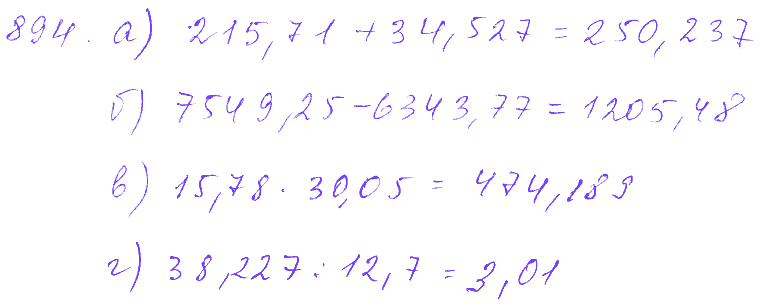 894. а) 215,71 + 34,527 = 250,237
б) 7549,25 - 6343,77 = 1205,48
в) 15,78 · 30,05 = 474,189
г) 38,227 : 12,7 = 3,01